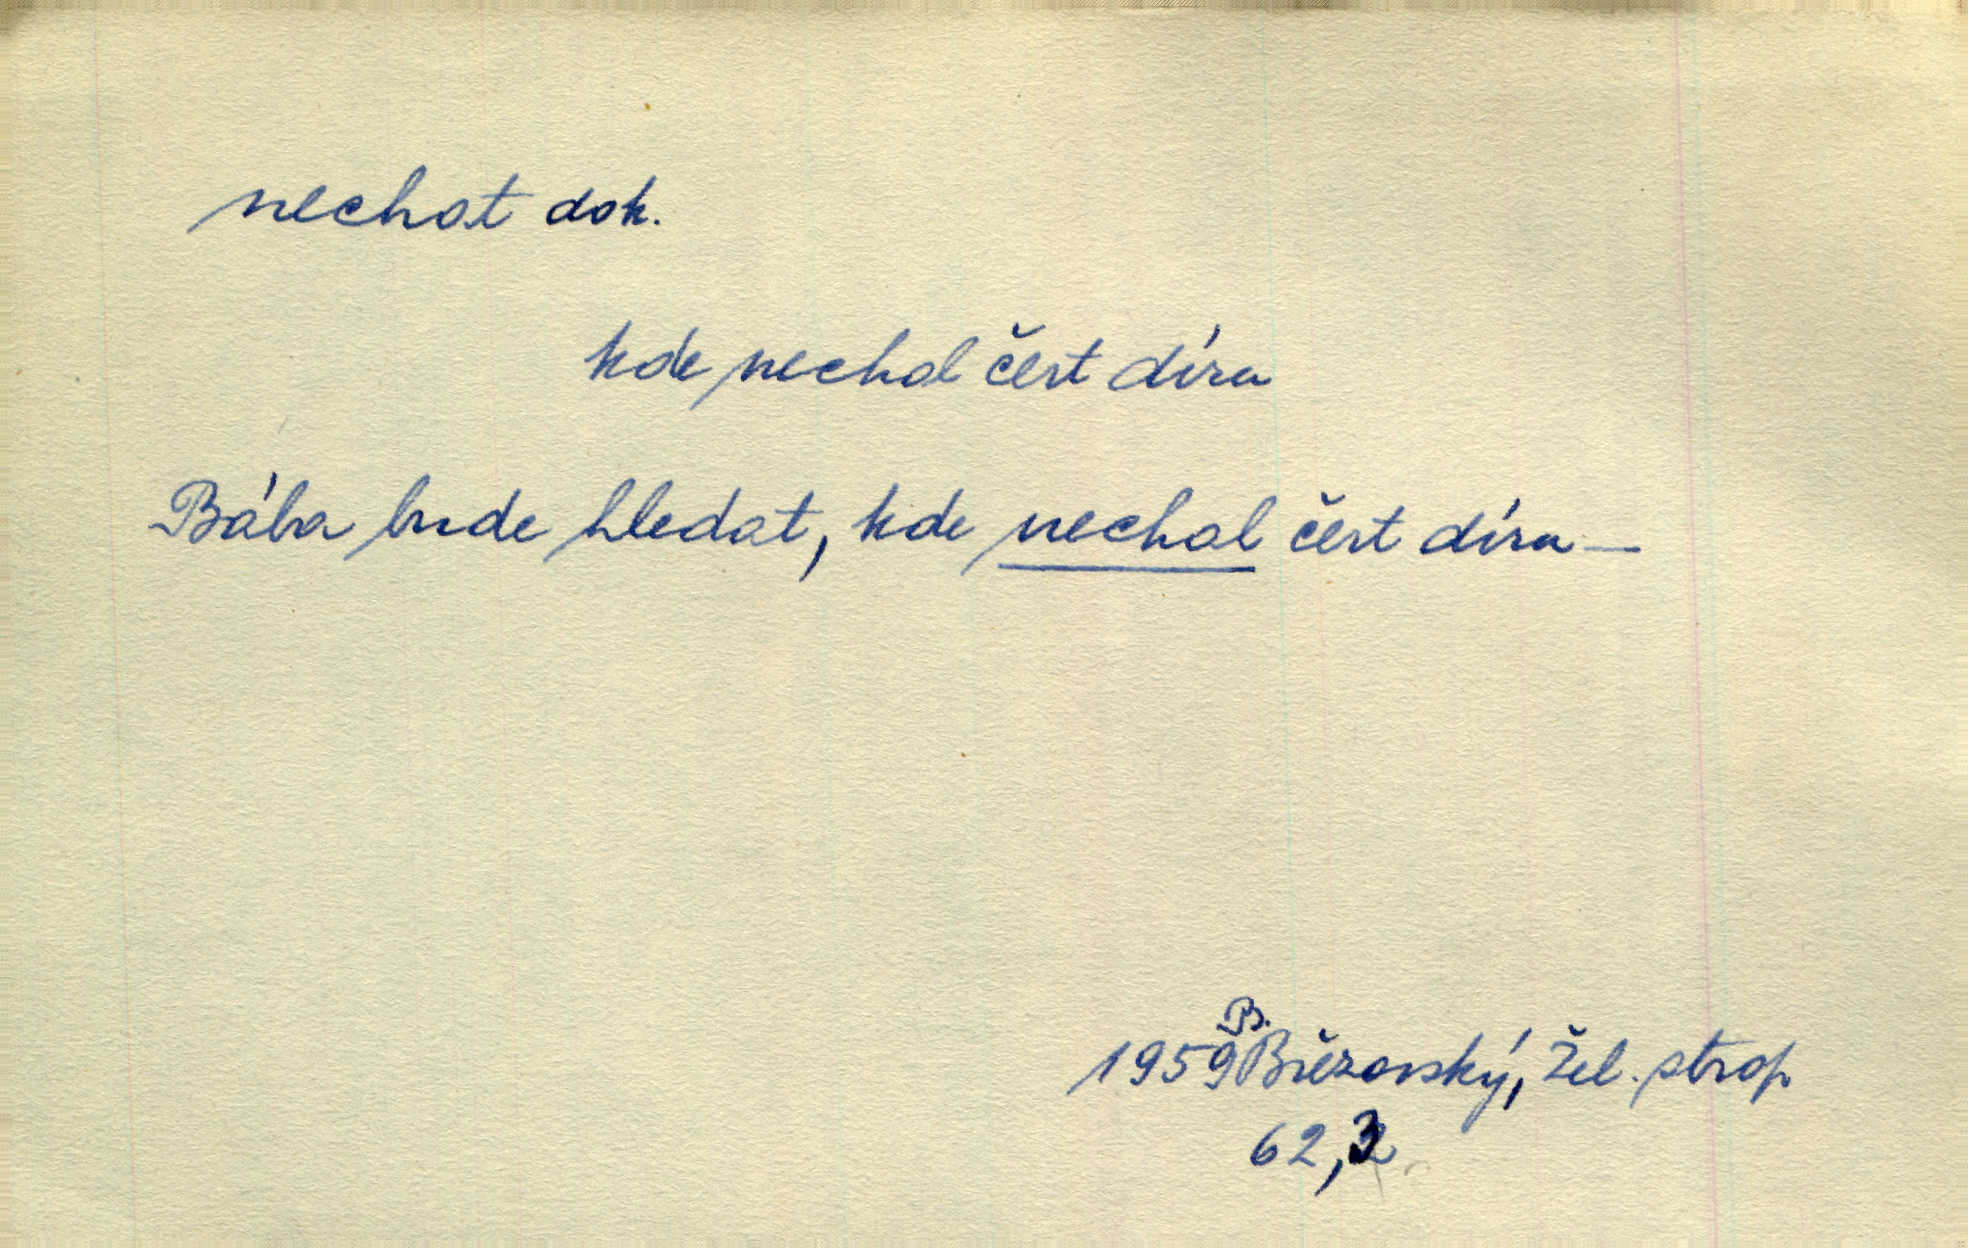 nechat dok.
kde nechal čert díru
Bába bude hledat, kde nechal čert díru —
B.
1959 Březovský, Žel. strop
62,3